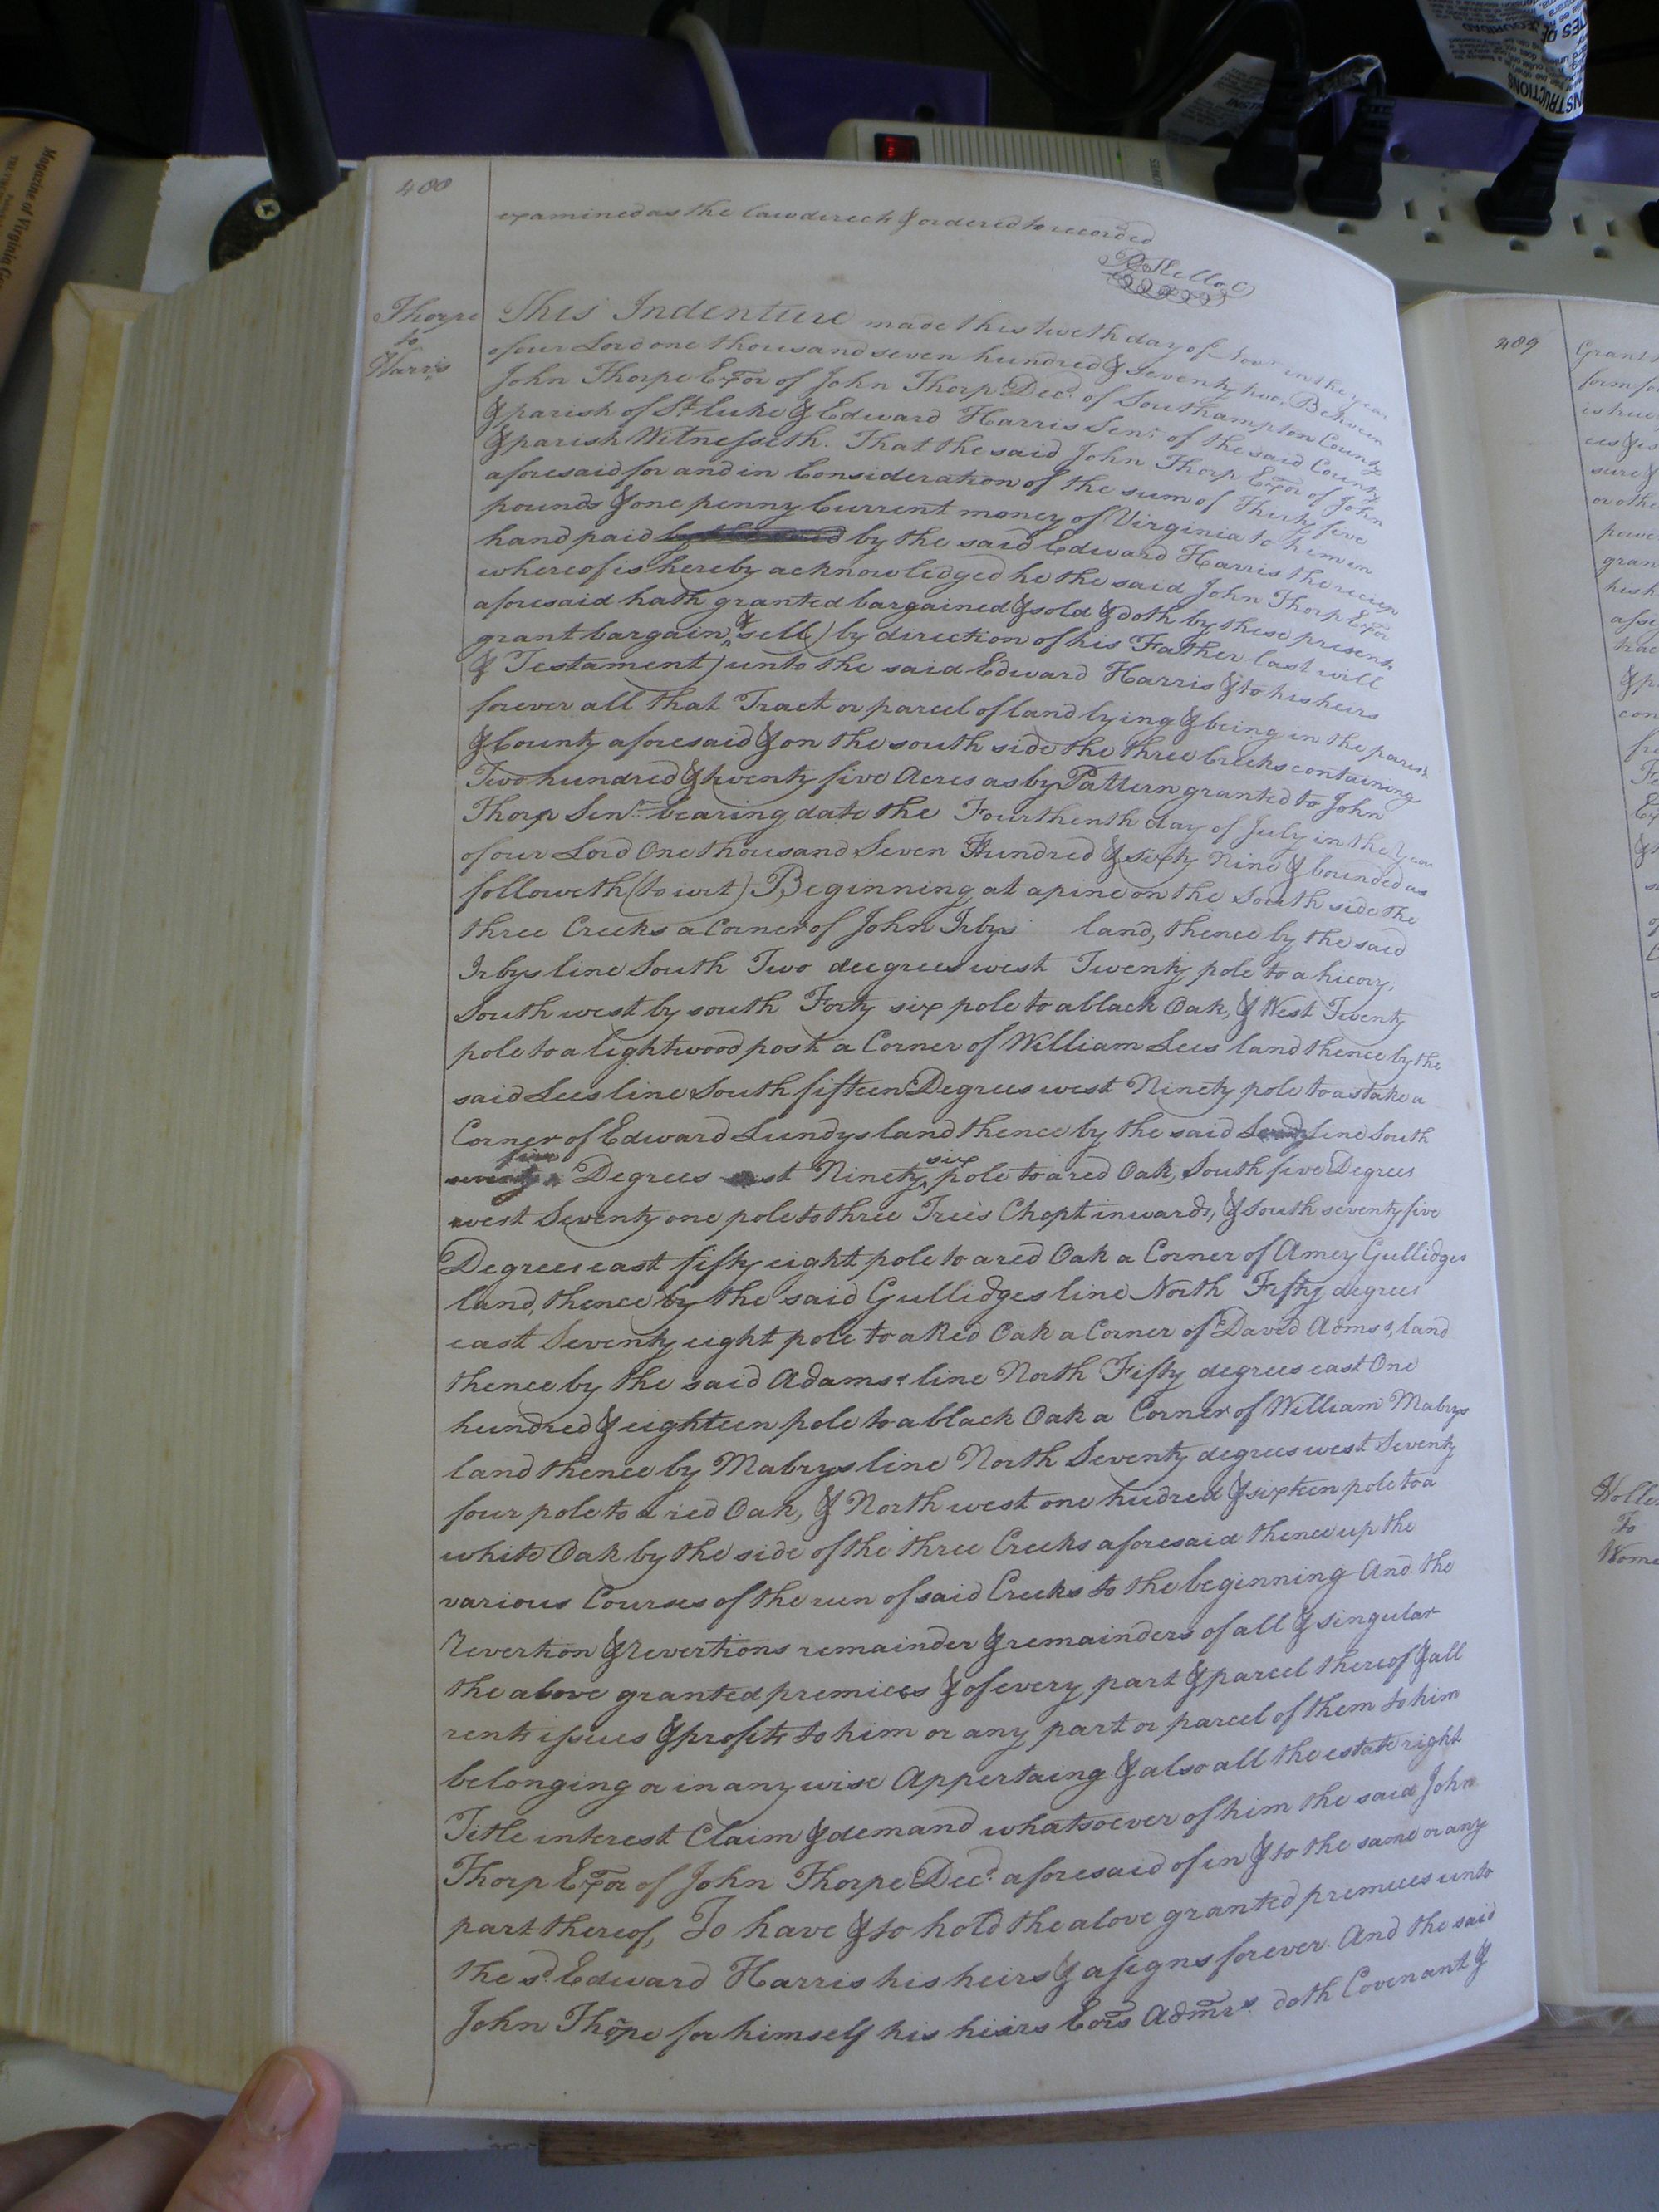 488
examined as the law directs & ordered to recorded
Thorpe
to
Harris
This Indenture made this day of in the year
of our Lord one thousand seven hundred & seventy two, Between
John Thorpe Exor of John Thorp Decd. of Southampton County
& parish of St. Luke & Edward Harris Senr. of the said County
& parish Witnesseth. That the said John Thorp Exor of John
aforesaid for and in Consideration of the sum of Thirty five
pounds & one penny Current money of Virginia to him in
hand paid by the said Edward Harris the receip
whereof is hereby acknowledged he the said John Thorp Exor
aforesaid hath granted bargained & sold & doth by these presents
grant bargain & sell (by direction of his Father last will
& Testament) unto the said Edward Harris & to his heirs
forever all that Tract or parcel of land lying & being in the parish
& County aforesaid & on the south side the three Creeks containing
Two hundred & twenty five Acres as by Pattern granted to John
Thorp Senr. bearing date the Fourthenth day of July in the Year
of our Lord One thousand Seven Hundred & sixty Nine & bounded as
followeth (to wit) Beginning at a pine on the South side the
three Creeks a Corner of John Irbys land, thence by the said
Irbys line South Two deegrees west Twenty pole to a hicory,
South west by south Forty six pole to a black Oak, & West Twenty
pole to a lightwood post a Corner of William Lees land thence by the
said Lees line South fifteen Degrees west Ninety pole to a stake a
Corner of Edward Lundys land thence by the said Lundys line South
five Degrees Ninety six pole to a red Oak, South five Degrees
west Seventy one pole to three Trees Chopt inwards, & South seventy five
Degrees east fifty eight pole to a red Oak a Corner of Amey Gullidges
land, thence by the said Gullidges line North Fifty degrees
east Seventy eight pole to a Red Oak a Corner of David Adms's, land
thence by the said Adams's line North Fifty degrees east One
hundred & eighteen pole to a black Oak a Corner of William Mabrys
land thence by Mabrys line North Seventy degrees west Seventy
four pole to a red Oak, & North west one hudred & sixteen pole to a
white Oak by the side of the three Creeks aforesaid thence up the
various Courses of the run of said Creeks to the beginning And the
Revertion & Revertions remainder & remainders of all & singular
the above granted premices & of every part & parcel thereof & all
rents issues & profits to him or any part or parcel of them to him
belonging or in any wise Appertaing & also all the estate right
Title interest Claim & demand whatsoever of him the said John
Thorp Exor of John Thorpe Decd. aforesaid of in & to the same or any
part thereof, To have & to hold the above granted premices unto
the sd. Edward Harris his heirs & asigns forever. And the said
John Thope for himself his hiers Eors Admrs. doth Covenant &
489
Grant
form for
is true
sure &
or othe
powe
gran
his h
asse
trac
& p
con
Holle
To
Wome
Magazine of Virginia
INSTRUCTIONS